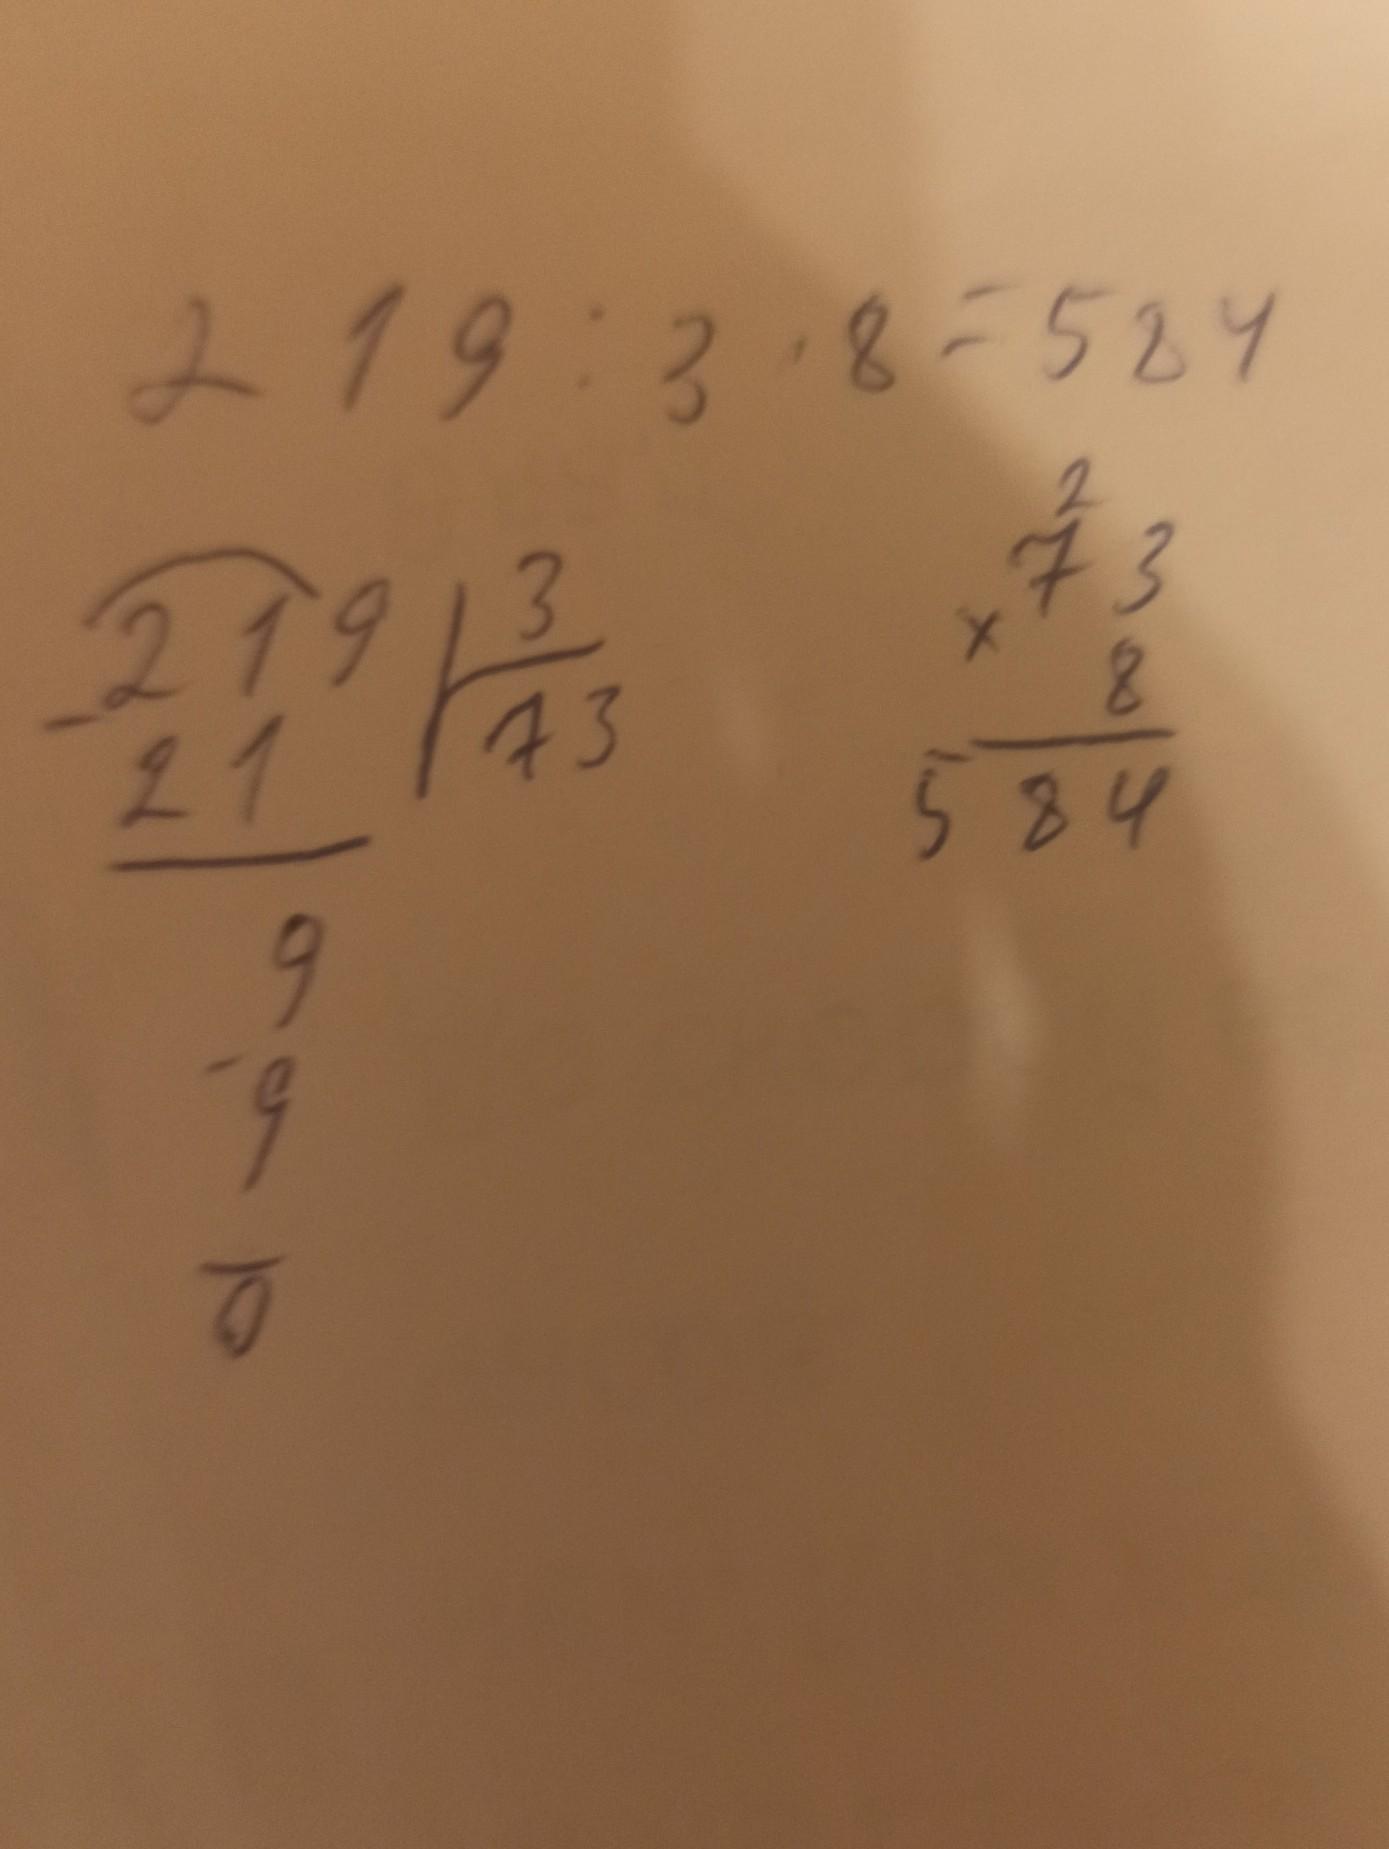 219:3·8=584
219 | 3
- 21 | 73
9
-9
0
2
73
x 8
584